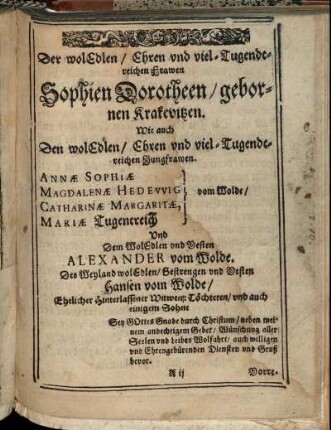 Der wolEdlen / Ehren vnd viel-Tugende-
reichen Frawen
Sophien Dorotheen / gebor-
nen Krakevitzen.
Wie auch
Den wolEdlen / Ehren vnd viel-Tugende-
reichen Jungfrawen.
ANNÆ SOPHIÆ
MAGDALENÆ HEDEVVIG
CATHARINÆ MARGARITÆ,
MARIÆ Tugentreich
vom Wolde /
Vnd
Dem WolEdlen vnd Vesten
ALEXANDER vom Wolde.
Des Weyland wolEdlen / Gestrengen vnd Vesten
Hansen vom Wolde /
Ehelicher Hinterlassener Witwen / Töchteren / vnd auch
einigem Sohne
Sey GOttes Gnade durch Christum / neben mei-
nem andechtigem Gebet / Wünschung aller
Seelen vnd Leibes Wolfahrt / auch willigen
vnd Ehrengebürenden Diensten vnd Gruß
bevor.
A ij Vorre-